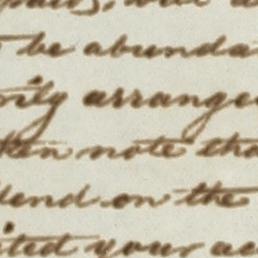 be abunda
ily arrange
ken note tha
end on the
ited your ac